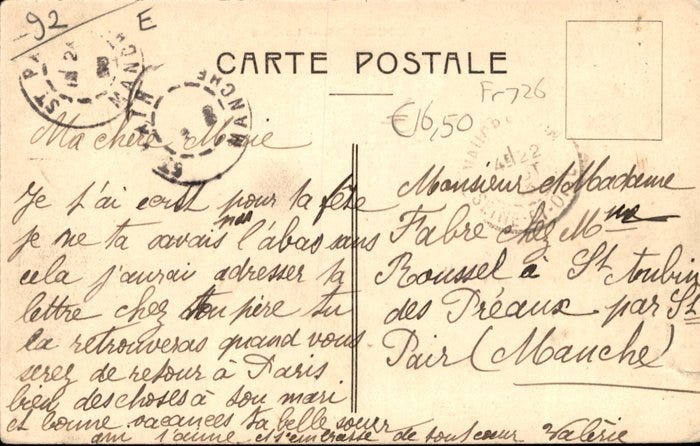 -92
E
CARTE POSTALE
Fr 726
€16,50
ST P
MANCHE
MANCHE
Ma chère Marie
Je t'ai ecrit pour ta fête
je ne ta savais pas l'abas sans
cela j'aurai adresser ta
lettre chez ton père tu
la retrouveras quand vous
serez de retour à Paris
bien des choses à ton mari
et bonne vacances ta belle soeur
qui t'aime et t'embrasse de tout coeur Valérie
Monsieur et Madame
Fabre chez Mme
Roussel à St Aubin
des Préaux par St
Pair (Manche)